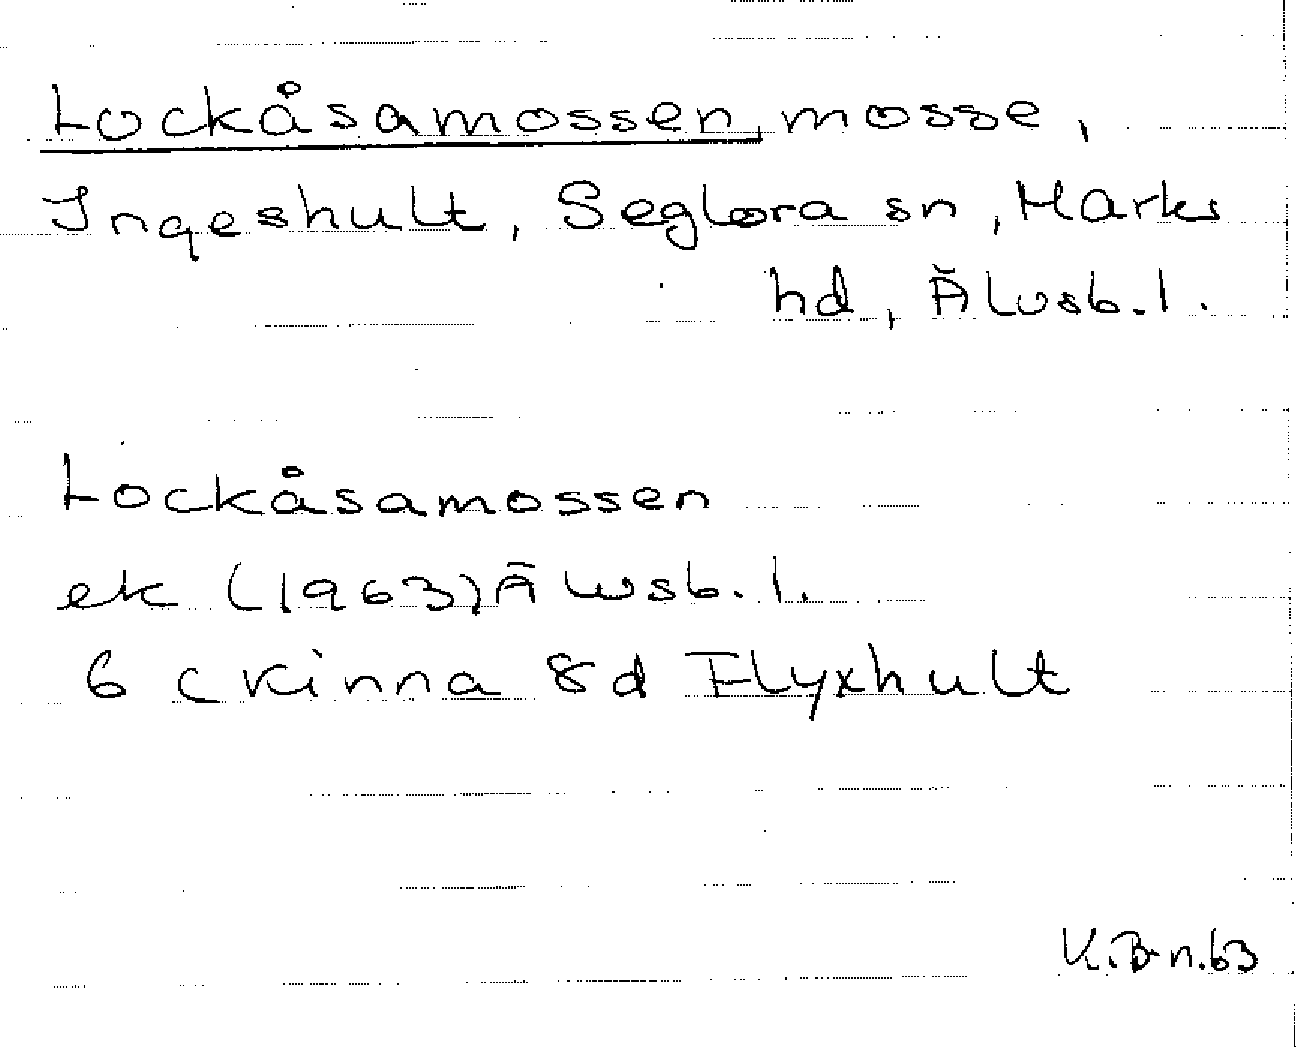 Lockåsamossen, mosse,
Ingeshult, Seglora sn, Marks
hd, Älvsb.l.
Lockåsamossen
ek (1963) Älvsb.l.
6 C Kinna 8d Flyxhult
K.B-n.63